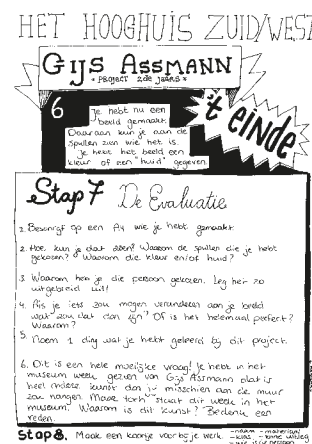 HET HOOGHUIS ZUID/WEST
GIJS ASSMANN
* PROJECT 2de JAARS *
't einde
6 Je hebt nu een
beeld gemaakt.
Daaraan kun je aan de
spullen zien wie het is.
Je hebt het beeld een
kleur of een "huid" gegeven.
Stap 7 De Evaluatie
1. Beschrijf op een A4 wie je hebt gemaakt.
2. Hoe kun je dat zien? Waarom de spullen die je hebt
gekozen? Waarom die kleur en/of huid?
3. Waarom heb je die persoon gekozen. Leg het zo
uitgebreid uit!
4. Als je iets zou mogen veranderen aan je beeld
wat zou dat dan zijn? Of is het helemaal perfect?
Waarom?
5. Noem 1 ding wat je hebt geleerd bij dit project.
6. Dit is een hele moeilijke vraag! Je hebt in het
museum werk gezien van Gijs Assmann dat is
heel andere kunst dan je misschien aan de muur
zou hangen. Maar toch staat dit werk in het
museum. Waarom is dit kunst? Bedenk een
reden.
Stap 8. Maak een kaartje voor bij je werk. - naam - materiaal
- klas - korte uitleg